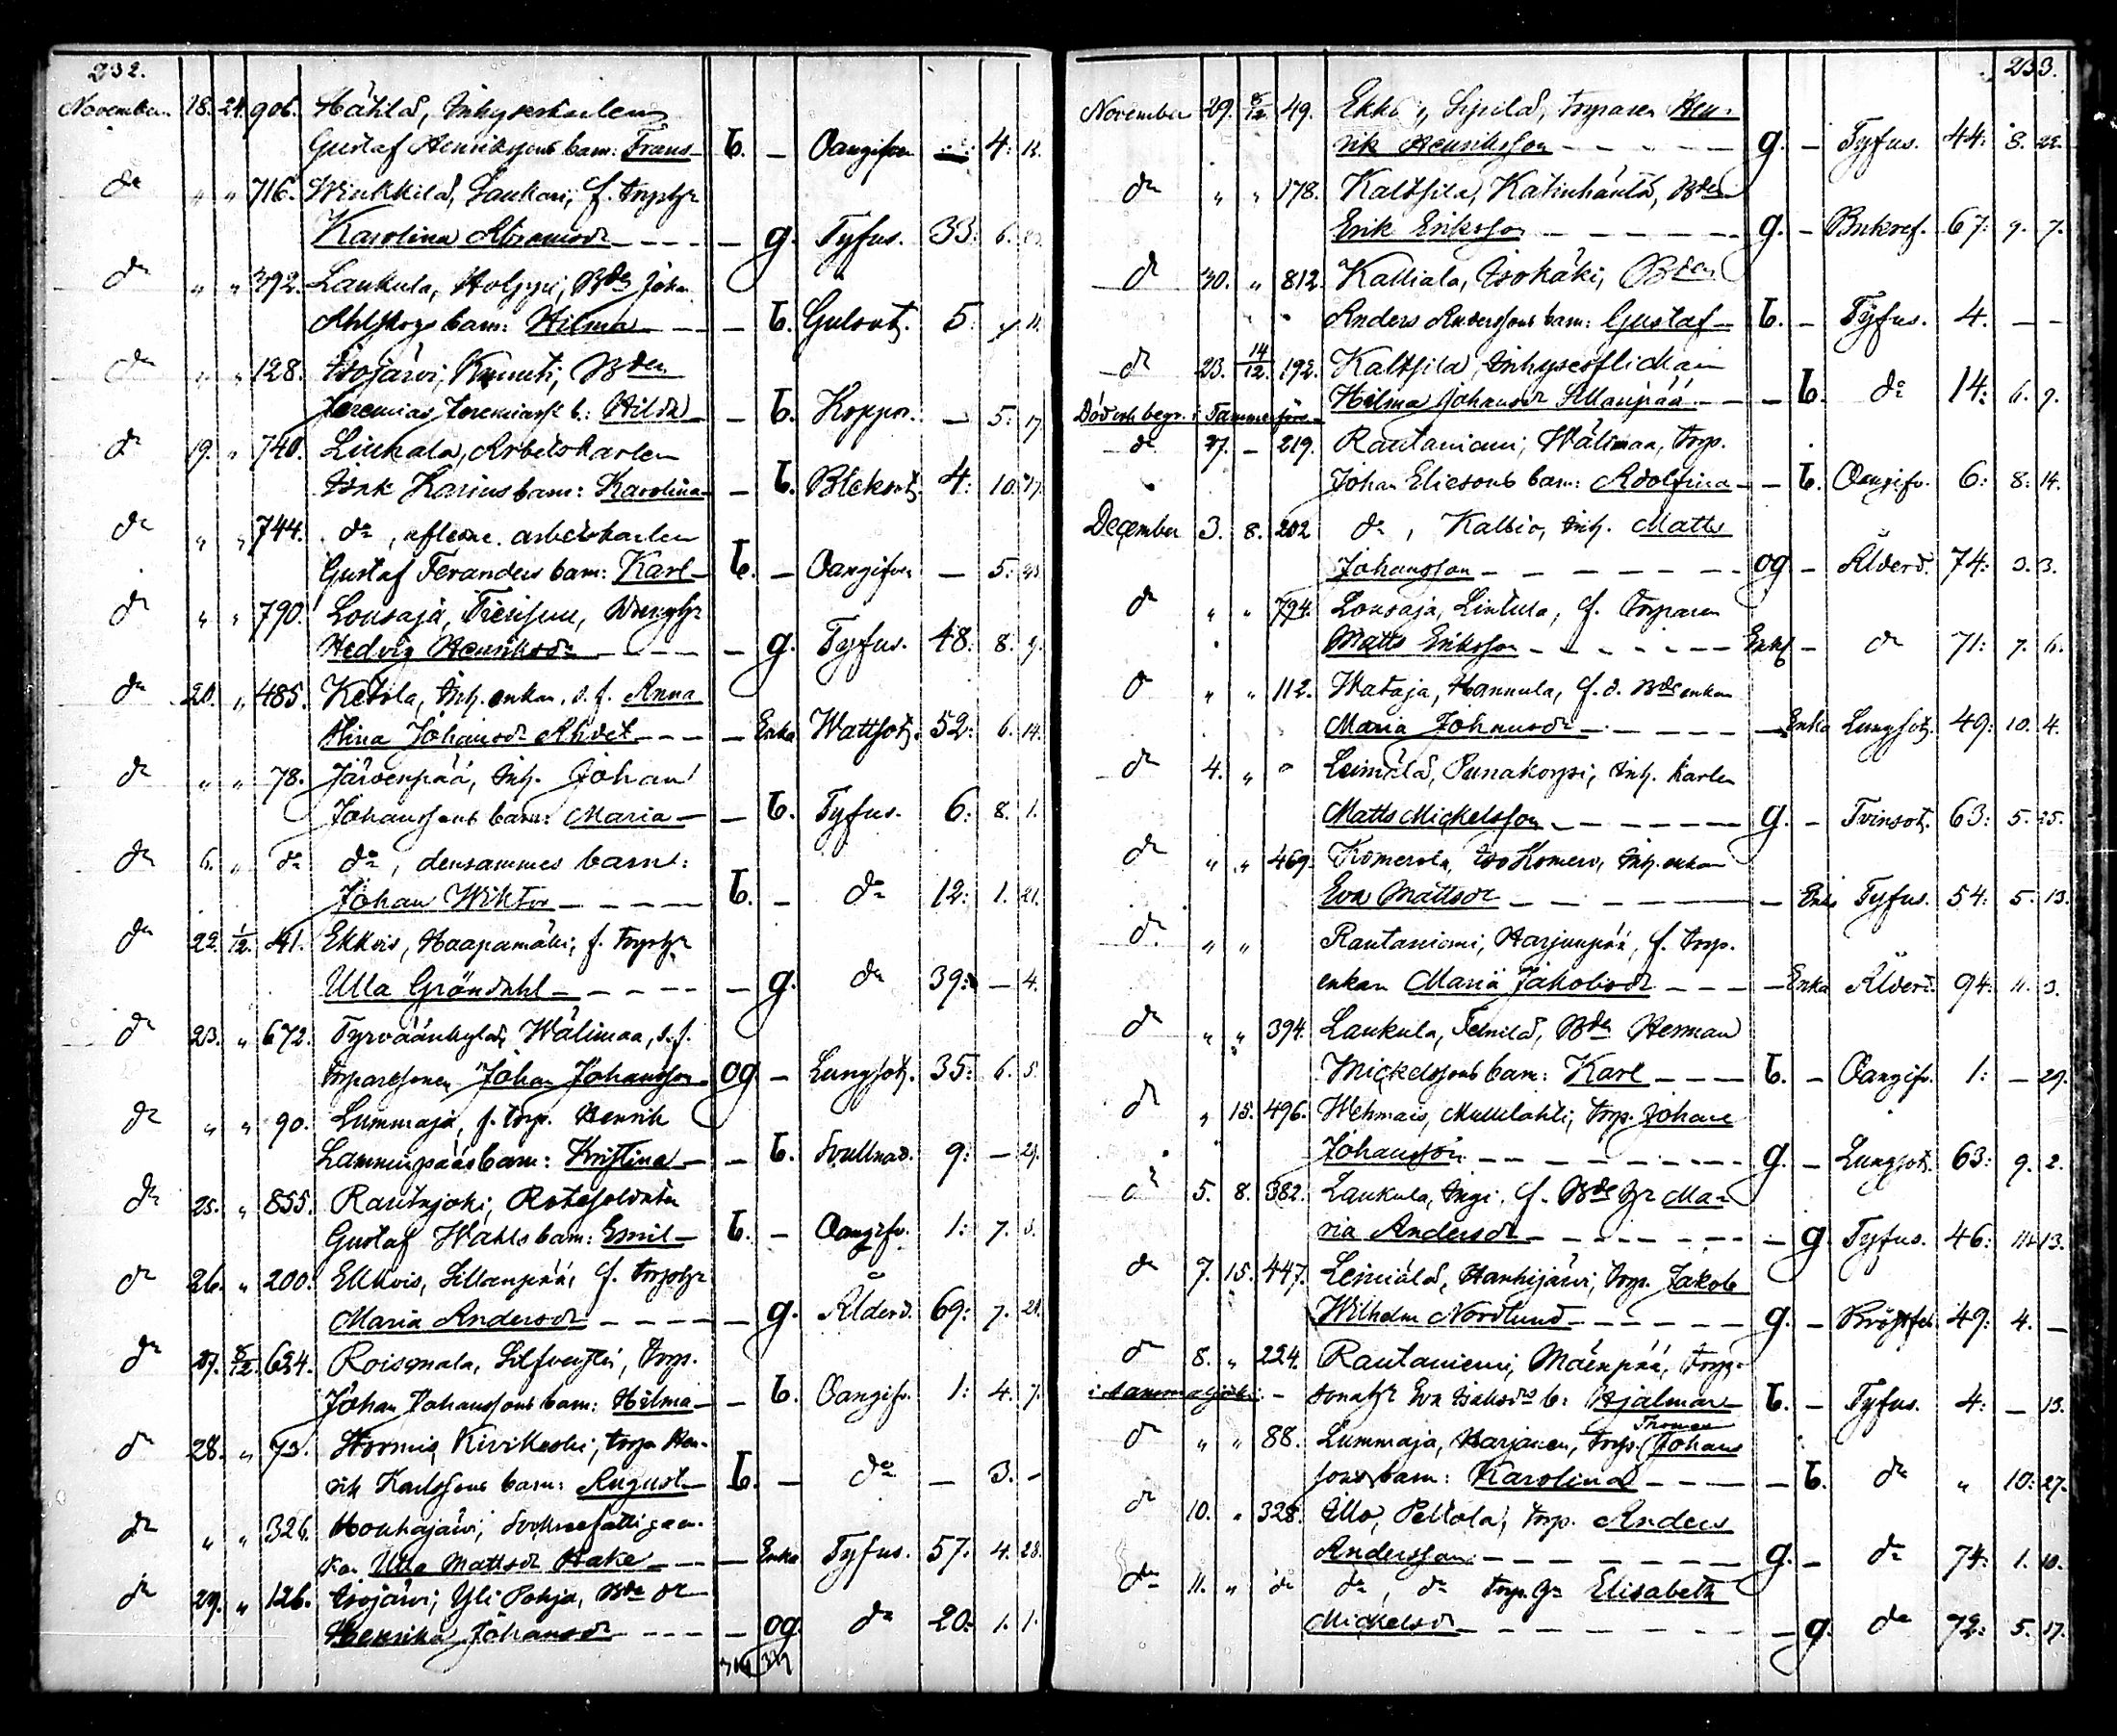 232.
November 18. 24. 906. Hätilä, Inhyseskarlen
Gustaf Henrikssons barn: Frans — b. — Oangifven — 4: 12.
dn " " 716. Winkkilä, Laukari, f. torp.h
Karolina Abramsdr — — — — g. Tyfus. 33: 6.
dn " " 392. Laukula, Holppi, Bdn Johan
Ahlskogs barn: Hilma — — b. Gulsot. 5: 11.
dn " " 128. Isojärvi, Knuuti, Bden
Jeremias Jeremiass. b: Hilda — — b. Koppor. — 5. 17.
dn 19. " 740. Liukala, Arbetskarlen
Isak Karins barn: Karolina — b. Bleksot. 4: 10. 17.
dn " " 744. dn, aflidne arbetskarlen
Gustaf Feranders barn: Karl — b. — Oangifven — 5.
dn " " 790. Lousaja,
Hedvig Henriksdr — — — g. Tyfus. 48: 8. 9.
dn 20. " 485. Ketola, Inh. enkan, d. f. Anna
Stina Johansdr — — — Enka Wattsot. 52: 6. 14.
dn " " 78. Järvenpää, Inh. Johan
Johanssons barn: Maria — — b. Tyfus. 6: 8. 1.
dn 6. " dn dn, densammes barn:
Johan Wiktor — — — — b. — dn 12: 1. 21.
dn 22. 1/12. 41. Ekkois, Haapamäki, f.
Ulla Gröndahl — — — — — g. dn 39: — 4.
dn 23. " 672. Tyrväänkylä, Wälimaa, d. f.
torparesonen Johan Johansson — og — Lungsot. 35: 6. 5.
dn " " 90. Lummaja, f. torp. Henrik
Lamminpääs barn: Kristina — — b. Svullnad. 9: — 29.
dn 25. " 855. Rautajoki, Rotesoldaten
Gustaf Wahls barn: Emil — b. — Oangifv. 1: 7. 3.
dn 26. " 200. Ekkois, Sillanpää, f.
Maria Andersdr — — — — — g. Ålderd. 69: 7. 21.
dn 27. 8/12. 624. Roismala, torp.
Johan Johanssons barn: Hilma — — b. Oangifv. 1: 4. 7.
dn 28. " 73. Stormis, Kivikoski, torp. Hen-
rik Karlssons barn: August — b. — dn — 3. –
dn " " 326. Houhajärvi,
ka. Ulla Mattsdr Hake — — — Enka Tyfus. 57. 4. 28.
dn 29. " 126. Isojärvi, Yli Pohja, Bdn dr
Henrika Johansdr — — — — og. dn 20: 1. 1.
233.
November 29. 8/12 49. Ekko, Sipilä, torparen Hen-
rik Henriksson — — — — — g. — Tyfus. 44: 8. 22.
dn " " 178. Kaltsila, Katinhäntä, Bden
Erik Eriksson — — — — — — g. — 67: 9. 7.
dn 30. " 812. Kalliala, Isohäki, Bden
Anders Anderssons barn: Gustaf — b. — Tyfus. 4. — —
dn 23. 14/12. 192. Kaltsila, Inhysesflickan
Hilma Johansdr Sillanpää — — — b. dn 14: 6. 9.
Död och begr. i Tammerfors
dn 27. — 219. Rautaniemi, Wälimaa, torp.
Johan Eliesons barn: Adolfina — — b. Oangifv. 6: 8: 14.
December 3. 8. 202 dn, Kallio, Inh. Matts
Johansson — — — — — — og — Ålderd. 74: 3.
dn " " 794. Lousaja, Lintula, f. torparen
Matts Eriksson — — — — — — Enkl — dn 71: 7. 6.
d " " 112. Wataja, Hannula, f. d. Bds enkan
Maria Johansdr — — — — — Enka Lungsot. 49: 10. 4.
dn 4. " " Leimälä, Punakorpi, Inh. karlen
Matts Mickelsson — — — — — g. — Tvinsot. 63: 5. 25.
dn " " 469. Komerola, Iso Komero, Inh. enkan
Eva Mattsdr — — — — Enka Tyfus. 54: 5. 13.
dn " " Rautaniemi, Harjunpää, f. torp.
enkan Maria Jakobsdr — — — — Enka Ålderd. 94: 11. 3.
dn " " 394. Laukula, Bdn Herman
Mickelssons barn: Karl — — — b. — Oangifv. 1: — 29.
dn " 15. 496. Wehmais, Mullilahti, torp. Johan
Johansson — — — — — — — g. — Lungsot. 63: 9. 2.
dn 5. 8. 382. Laukula, f. Bds Ma-
ria Andersdr — — — — — — g. Tyfus. 46: 11. 13.
dn 7. 15. 447. Leimälä, Hanhijärvi, torp. Jakob
Wilhelm Nordlund — — — — — g. — Bröstfeb. 49: 4. —
dn 8. " 224. Rautaniemi, Mäenpää, torp.
Eva Isaksdrs b: Hjalmar — b. — Tyfus. 4: — 13.
dn " " 88. Lummaja, Harjanen, torp. Thomas Johans
sons barn: Karolina — — — — b. dn " 10: 27.
dn 10. " 328. Illo, Peltola, torp. Anders
Andersson — — — — — — — g. — dn 74: 1. 10.
dn 11. " dn dn, dn torp. Elisabeth
Mickelsdr — — — — — — — g. dn 72: 5. 17.